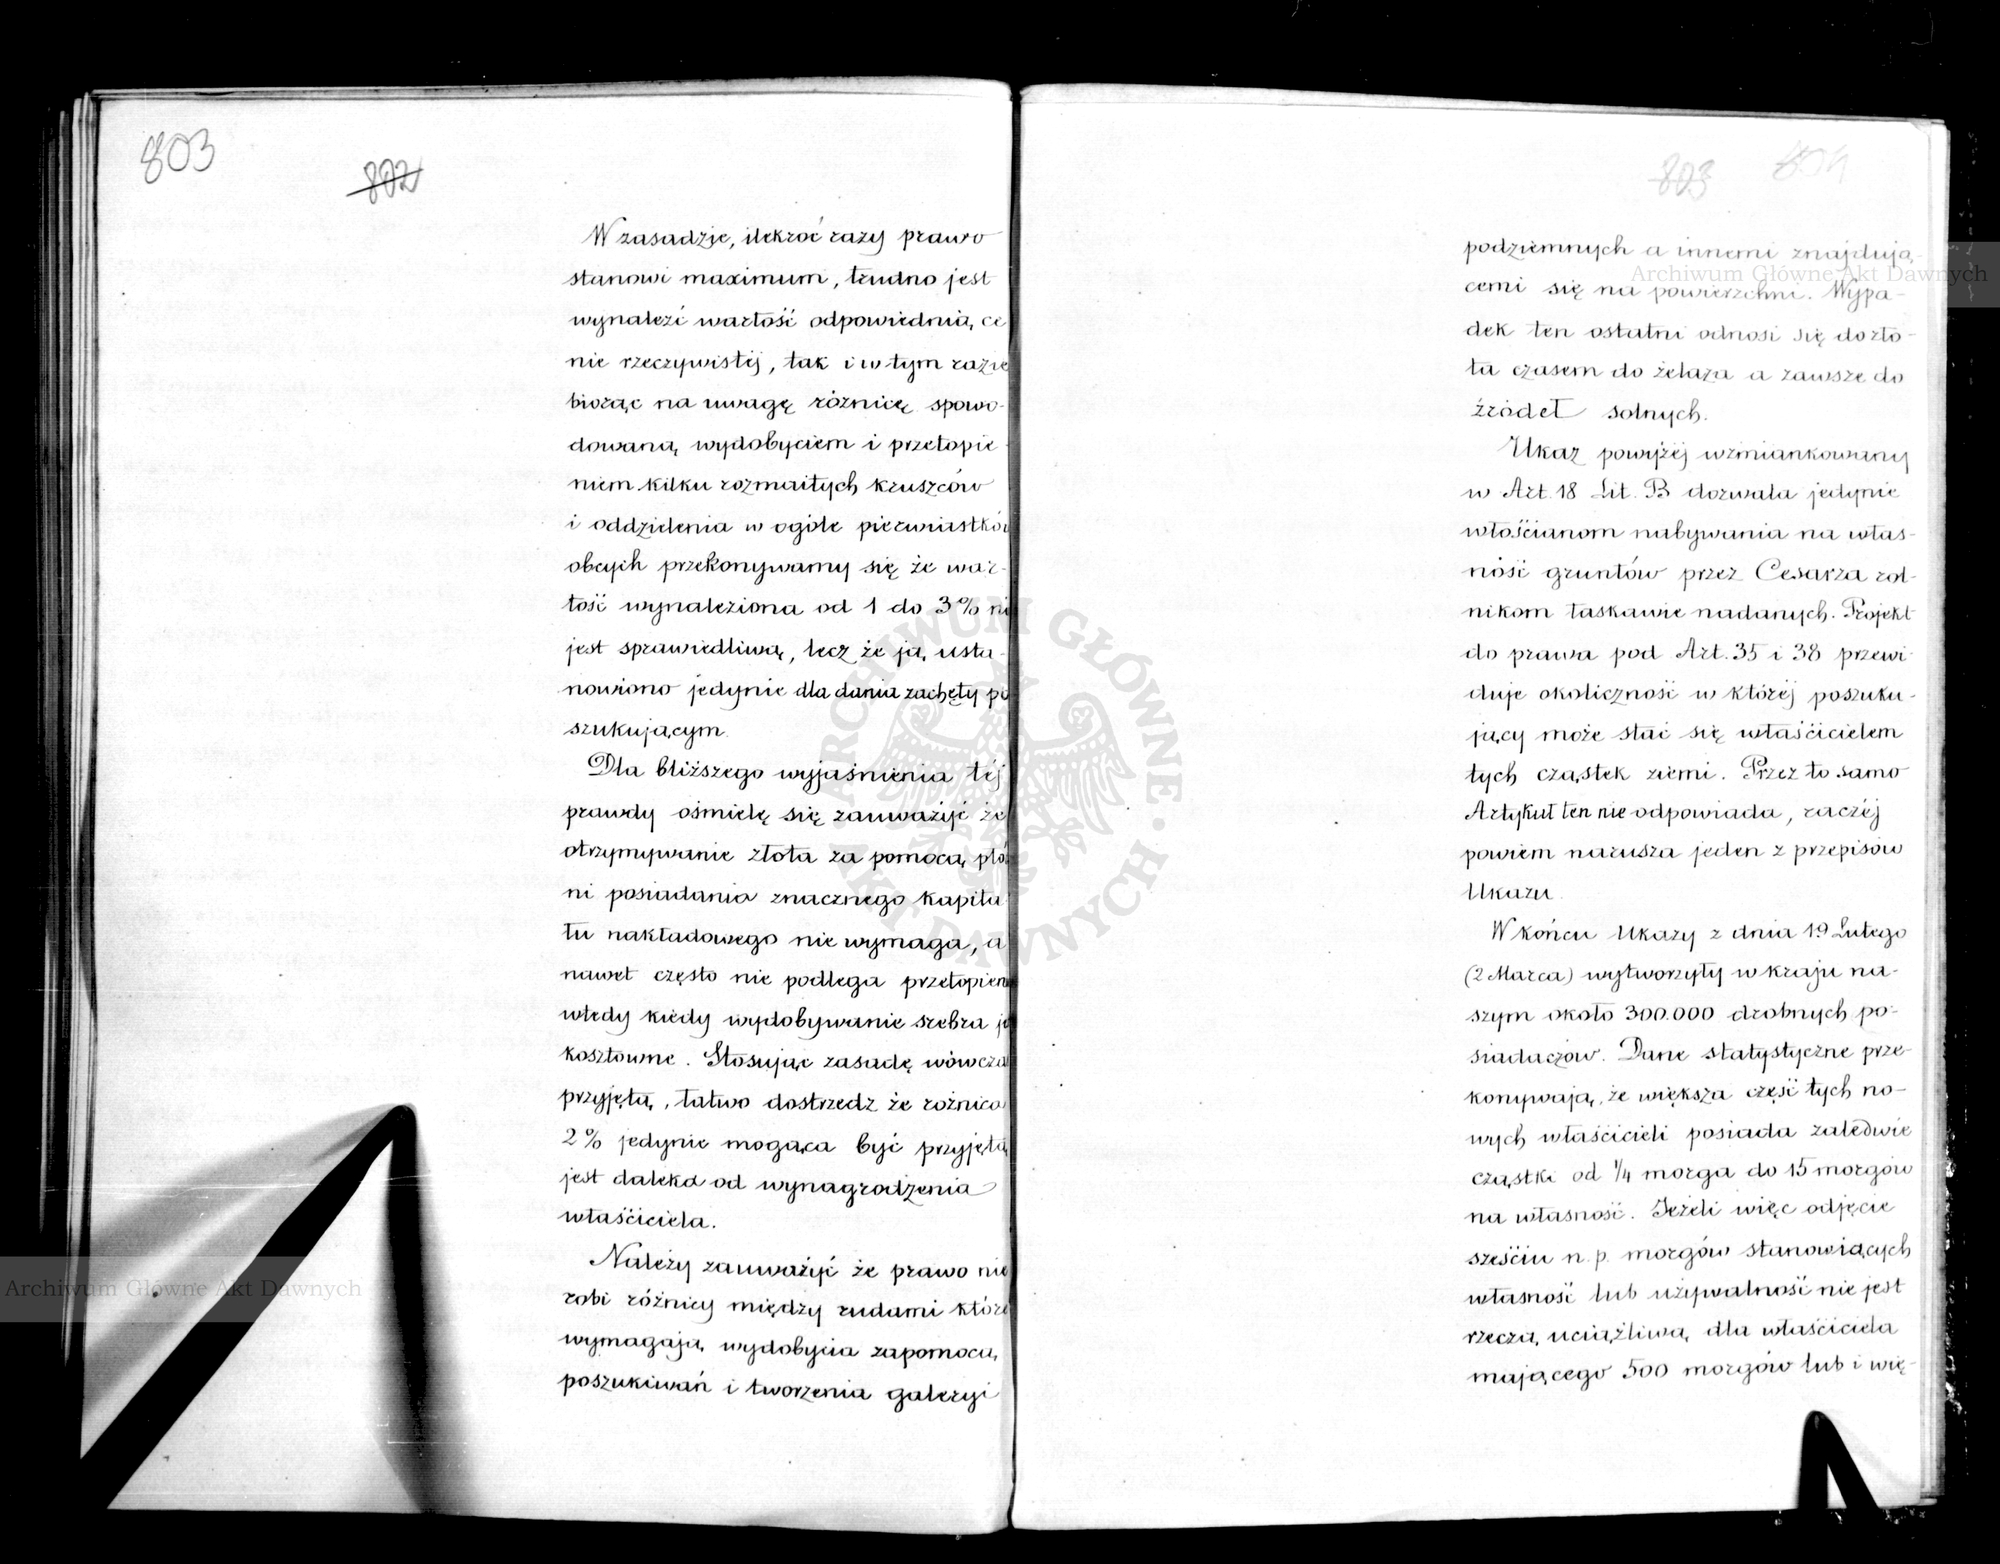 803
802
W zasadzie, ilekroć razy prawo
stanowi maximum, trudno jest
wynaleźć wartość odpowiednią ce
nie rzeczywistéj, tak i w tym razie
biorąc na uwagę różnicę spowo-
dowaną wydobyciem i przetopie-
niem kilku rozmaitych kruszców
i oddzielenia w ogóle pierwiastków
obcych przekonywamy się że war-
tość wynaleziona od 1 do 3% ni
jest sprawiedliwą, lecz że ją usta-
nowiono jedynie dla dania zachęty po
szukującym.
Dla bliższego wyjaśnienia téj
prawdy ośmielę się zauważyć że
otrzymywanie złota za pomocą płó
ni posiadania znacznego kapita
łu nakładowego nie wymaga, a
nawet często nie podlega przetopien
wtedy kiedy wydobywanie srebra je
kosztowne. Stosując zasadę wówcza
przyjętą, łatwo dostrzedz że różnica
2% jedynie mogąca być przyjętą
jest daleką od wynagrodzenia
właściciela.
Należy zauważyć że prawo nie
robi różnicy między rudami które
wymagają wydobycia zapomocą
poszukiwań i tworzenia galeryi
803 804
podziemnych a innemi znajdują-
cemi się na powierzchni. Wypa-
dek ten ostatni odnosi się do zło-
ta czasem do żelaza a zawsze do
źródeł solnych.
Ukaz powyżéj wzmiankowany
w Art. 18 Lit. B dozwala jedynie
włościanom nabywania na włas-
ność gruntów przez Cesarza rol-
nikom łaskawie nadanych. Projekt
do prawa pod Art. 35 i 38 przewi
duje okoliczność w któréj poszuku-
jący może stać się właścicielem
tych cząstek ziemi. Przez to samo
Artykuł ten nie odpowiada, raczéj
powiem narusza jeden z przepisów
Ukazu.
W końcu Ukazy z dnia 19 Lutego
(2 Marca) wytworzyły w kraju na-
szym około 300.000 drobnych po-
siadaczów. Dane statystyczne prze-
konywają, że większa część tych no-
wych właścicieli posiada zaledwie
cząstki od 1/4 morga do 15 morgów
na własność. Jeżeli więc odjęcie
sześciu n.p. morgów stanowiących
własność lub używalność nie jest
rzeczą uciążliwą dla właściciela
mającego 500 morgów lub i wię-
Archiwum Główne Akt Dawnych
Archiwum Główne Akt Dawnych
ARCHIWUM GŁÓWNE AKT DAWNYCH